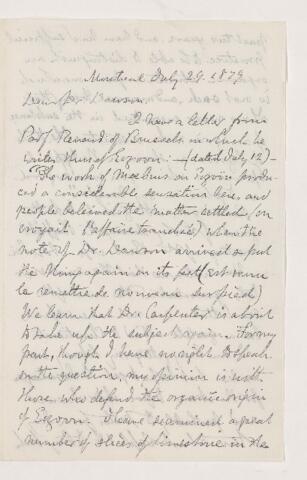 Montreal July 29. 1879
Dear Dr Dawson
I have a letter from
Prof Renard of Brussels in which he
writes thus of Eozoon:- (dated July 12)-
"The work of Moebius on Eozoon produ-
ced a considerable sensation here, and
people believed the matter settled (on
croyait l'affaire tranchée) when the
note of Dr. Dawson arrived & put
the thing again on its feet (est venue
la remettre de nouveau sur pied)
We learn that Dr. Carpenter is about
to take up the subject again. For my
part, though I have no right to speak
on the question, my opinion is with
those who defend the organic origin
of Eozoon. I have examined a great
number of slices of limestone in the